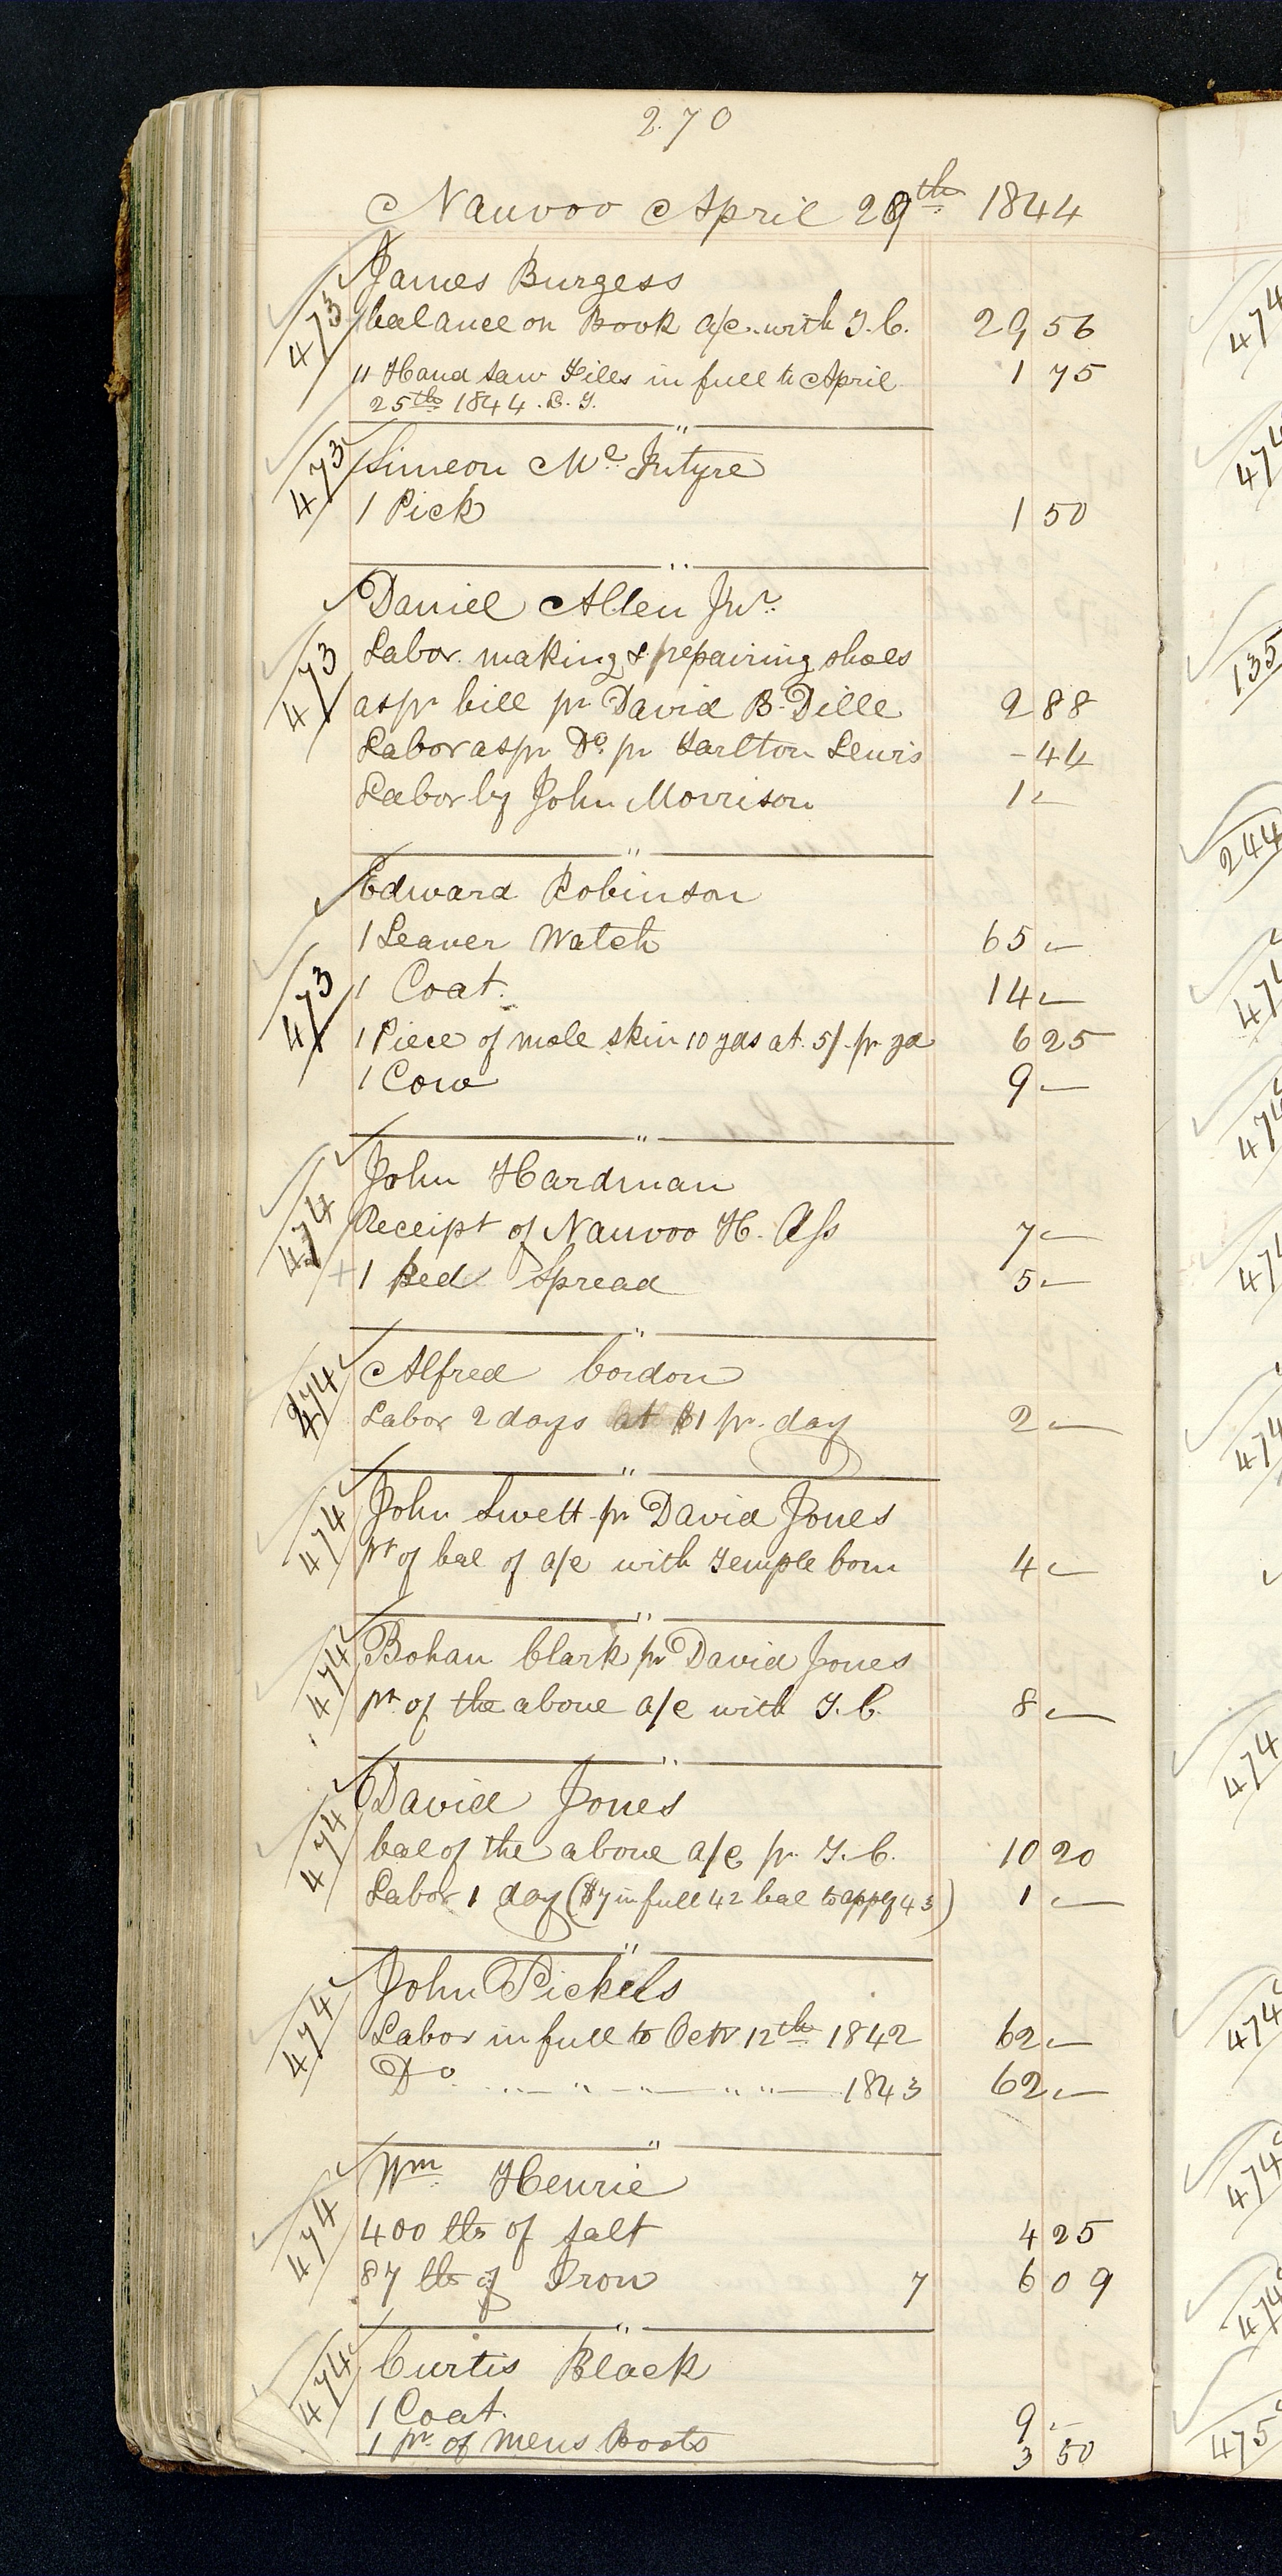 270
Nauvoo April 29th 1844
473 James Burgess
balance on Book a/c. with T. C. 29 56
11 Hand saw Files in full to April 1 75
25th 1844. D. T.
473 Simeon Mc Intyre
1 Pick 1 50
Daniel Allen Jnr.
473 Labor. making & repairing shoes
as pr bill pr David B. Dille 2 88
Labor as pr Do. pr Tarlton Lewis - 44
Labor by John Morrison 1 –
Edward Robinson
1 Leaver Watch 65 –
473 1 Coat. 14 –
1 Piece of mole skin 10 yds at 5/- pr yd 6 25
1 Cow 9 –
John Hardman
474 Receipt of Nauvoo H. Ass 7 –
+ 1 Bed Spread 5 –
474 Alfred Cordon
Labor 2 days at $1 pr. day 2 –
474 John Swett pr David Jones
pt of bal of a/c with Temple Com 4 –
474 Bohan Clark pr David Jones
pt. of the above a/c with T. C. 8 –
David Jones
474 bal of the above a/c pr. T. C. 10 20
Labor 1 day ($7 in full 42 bal to apply 43) 1 –
John Pickels
474 Labor in full to Octr 12th 1842 62 –
Do. " " " " 1843 62 –
Wm Henrie
474 400 lbs of salt 4 25
87 lbs of Iron 7 6 09
474 Curtis Black
1 Coat. 9 –
1 pr. of mens Boots 3 50
474
474
135
244
474
474
474
474
474
474
474
474
475